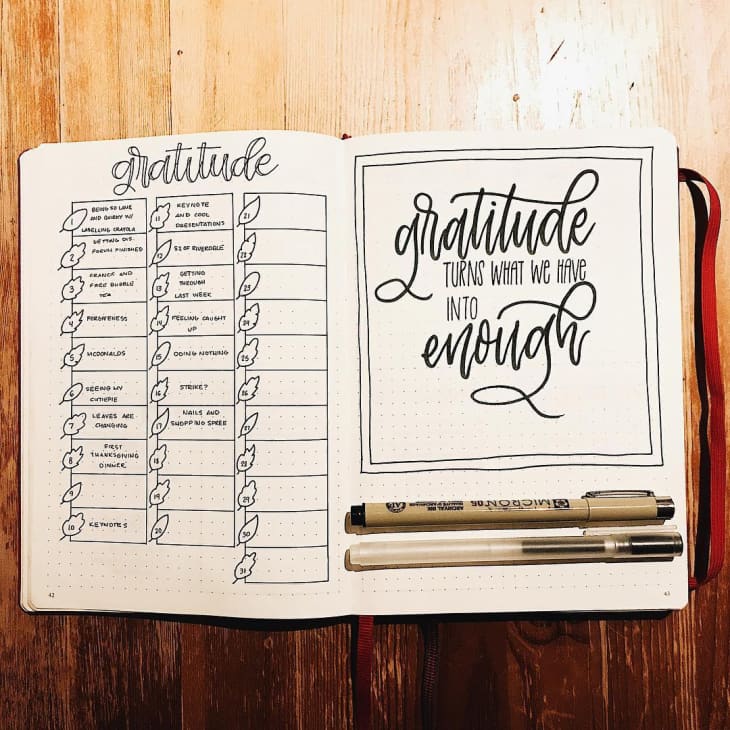 gratitude
1 BEING SO LAME
AND QUIRKY W/
LABELLING CRAYOLA
2 GETTING DIS.
FORUM FINISHED
3 FRANCE AND
FREE BUBBLE
TEA
4 FORGIVENESS
5 MCDONALDS
6 SEEING MY
CUTIEPIE
7 LEAVES ARE
CHANGING
8 FIRST
THANKSGIVING
DINNER
9
10 KEYNOTES
11 KEYNOTE
AND COOL
PRESENTATIONS
12 S2 OF RIVERDALE
13 GETTING
THROUGH
LAST WEEK
14 FEELING CAUGHT
UP
15 DOING NOTHING
16 STRIKE?
17 NAILS AND
SHOPPING SPREE
18
19
20
21
22
23
24
25
26
27
28
29
30
31
42
gratitude
TURNS WHAT WE HAVE
INTO
enough
MICRON 05
ARCHIVAL INK
43